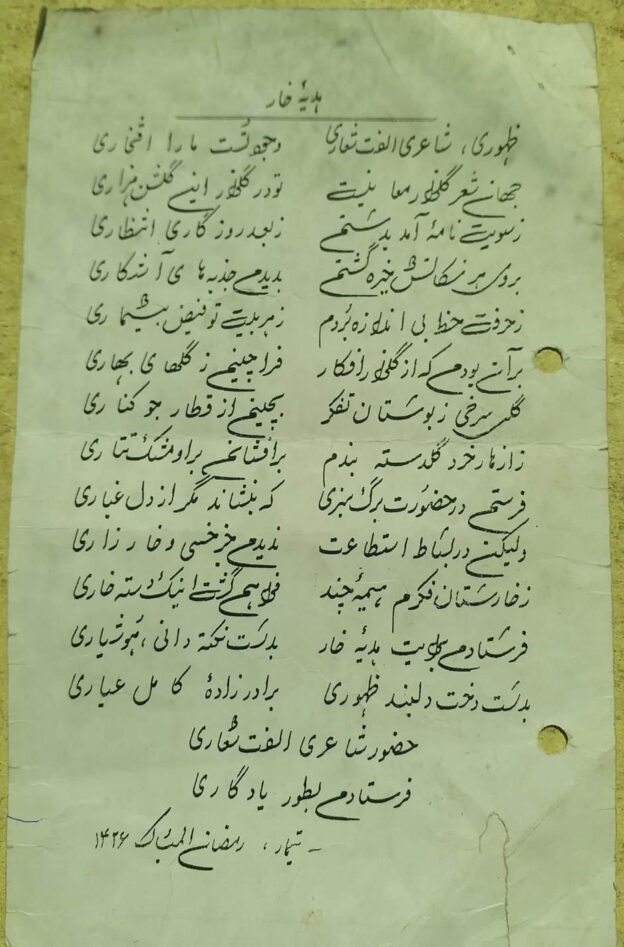 هدیهٔ خار
ظهوری، شاعری الفت شعاری وجود تست ما را افتخاری
جهان شعر گلزار معانیت تو در گلزار این گلشن هزاری
ز سویت نامهٔ آمد بدستم ز بعد روزگاری انتظاری
بروی هر نکاتش خیره گشتم بدیدم جذبه های آشکاری
ز حرفت حظ بی اندازه بردم ز هر بیت تو فیض بیشماری
بر آن بودم که از گلزار افکار فرا چینم ز گلهای بهاری
گل سرخی ز بوستان تفکر بچینم از قطار جو کناری
ز ازهار خرد گلدسته بندم برافشانم براو مشک تتاری
فرستم در حضورت برگ سبزی که بنشاند مگر از دل غباری
ولیکن در بساط استطاعت ندیدم جز خسی و خار زاری
ز خارستان فکرم هیمهٔ چند فراهم گشت اینک دسته خاری
فرستادم برایت هدیهٔ خار بدست نکته دانی، هوشیاری
بدست دخت دلبند ظهوری برادرزادهٔ کامل عیاری
حضور شاعری الفت شعاری
فرستادم بطور یادگاری
ـ تیمار، رمضان المبارک ۱۴۲۶